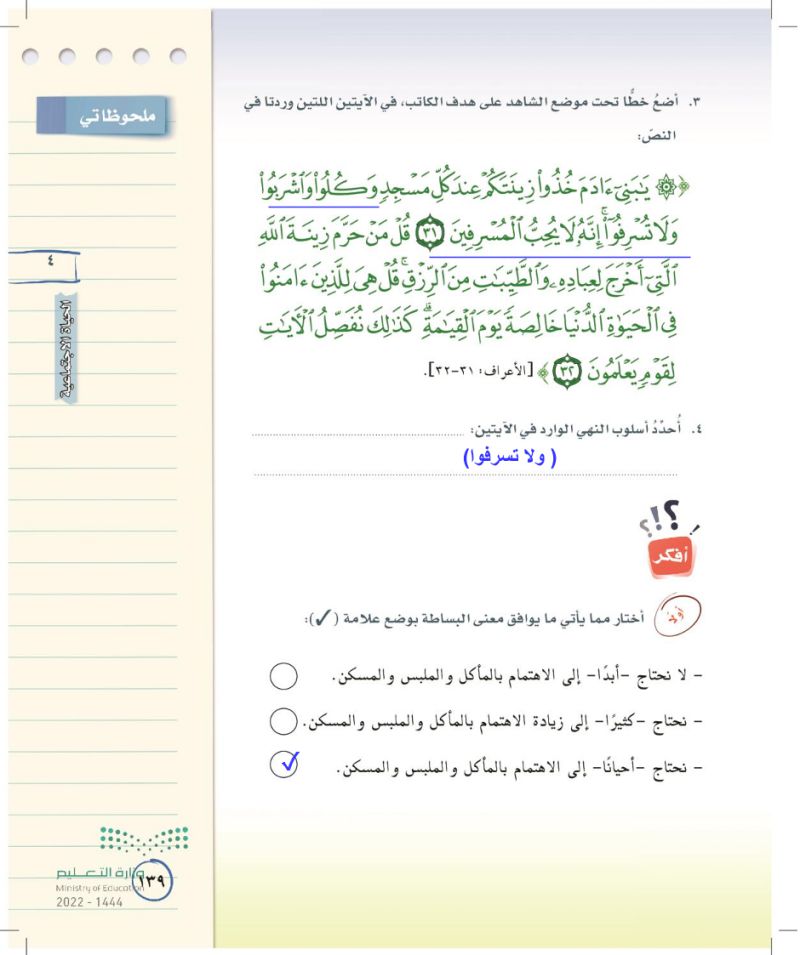 ملحوظاتي
٣. أضعُ خطًّا تحت موضع الشاهد على هدف الكاتب، في الآيتين اللتين وردتا في
النصّ:
﴿۞ يَٰبَنِيٓ ءَادَمَ خُذُواْ زِينَتَكُمۡ عِندَ كُلِّ مَسۡجِدٖ وَكُلُواْ وَٱشۡرَبُواْ
وَلَا تُسۡرِفُوٓاْۚ إِنَّهُۥ لَا يُحِبُّ ٱلۡمُسۡرِفِينَ ٣١ قُلۡ مَنۡ حَرَّمَ زِينَةَ ٱللَّهِ
ٱلَّتِيٓ أَخۡرَجَ لِعِبَادِهِۦ وَٱلطَّيِّبَٰتِ مِنَ ٱلرِّزۡقِۚ قُلۡ هِيَ لِلَّذِينَ ءَامَنُواْ
فِي ٱلۡحَيَوٰةِ ٱلدُّنۡيَا خَالِصَةٗ يَوۡمَ ٱلۡقِيَٰمَةِۗ كَذَٰلِكَ نُفَصِّلُ ٱلۡأٓيَٰتِ
لِقَوۡمٖ يَعۡلَمُونَ ٣٢﴾ [الأعراف: ٣١-٣٢].
٤. أُحدِّدُ أسلوب النهي الوارد في الآيتين:
( ولا تسرفوا)
؟!؟!
أفكر
أولًا
أختار مما يأتي ما يوافق معنى البساطة بوضع علامة (✓):
- لا نحتاج -أبدًا- إلى الاهتمام بالمأكل والملبس والمسكن.
- نحتاج -كثيرًا- إلى زيادة الاهتمام بالمأكل والملبس والمسكن.
- نحتاج -أحيانًا- إلى الاهتمام بالمأكل والملبس والمسكن.
٤
الحياة الاجتماعية
وزارة التعليم
Ministry of Education
2022 - 1444
١٣٩